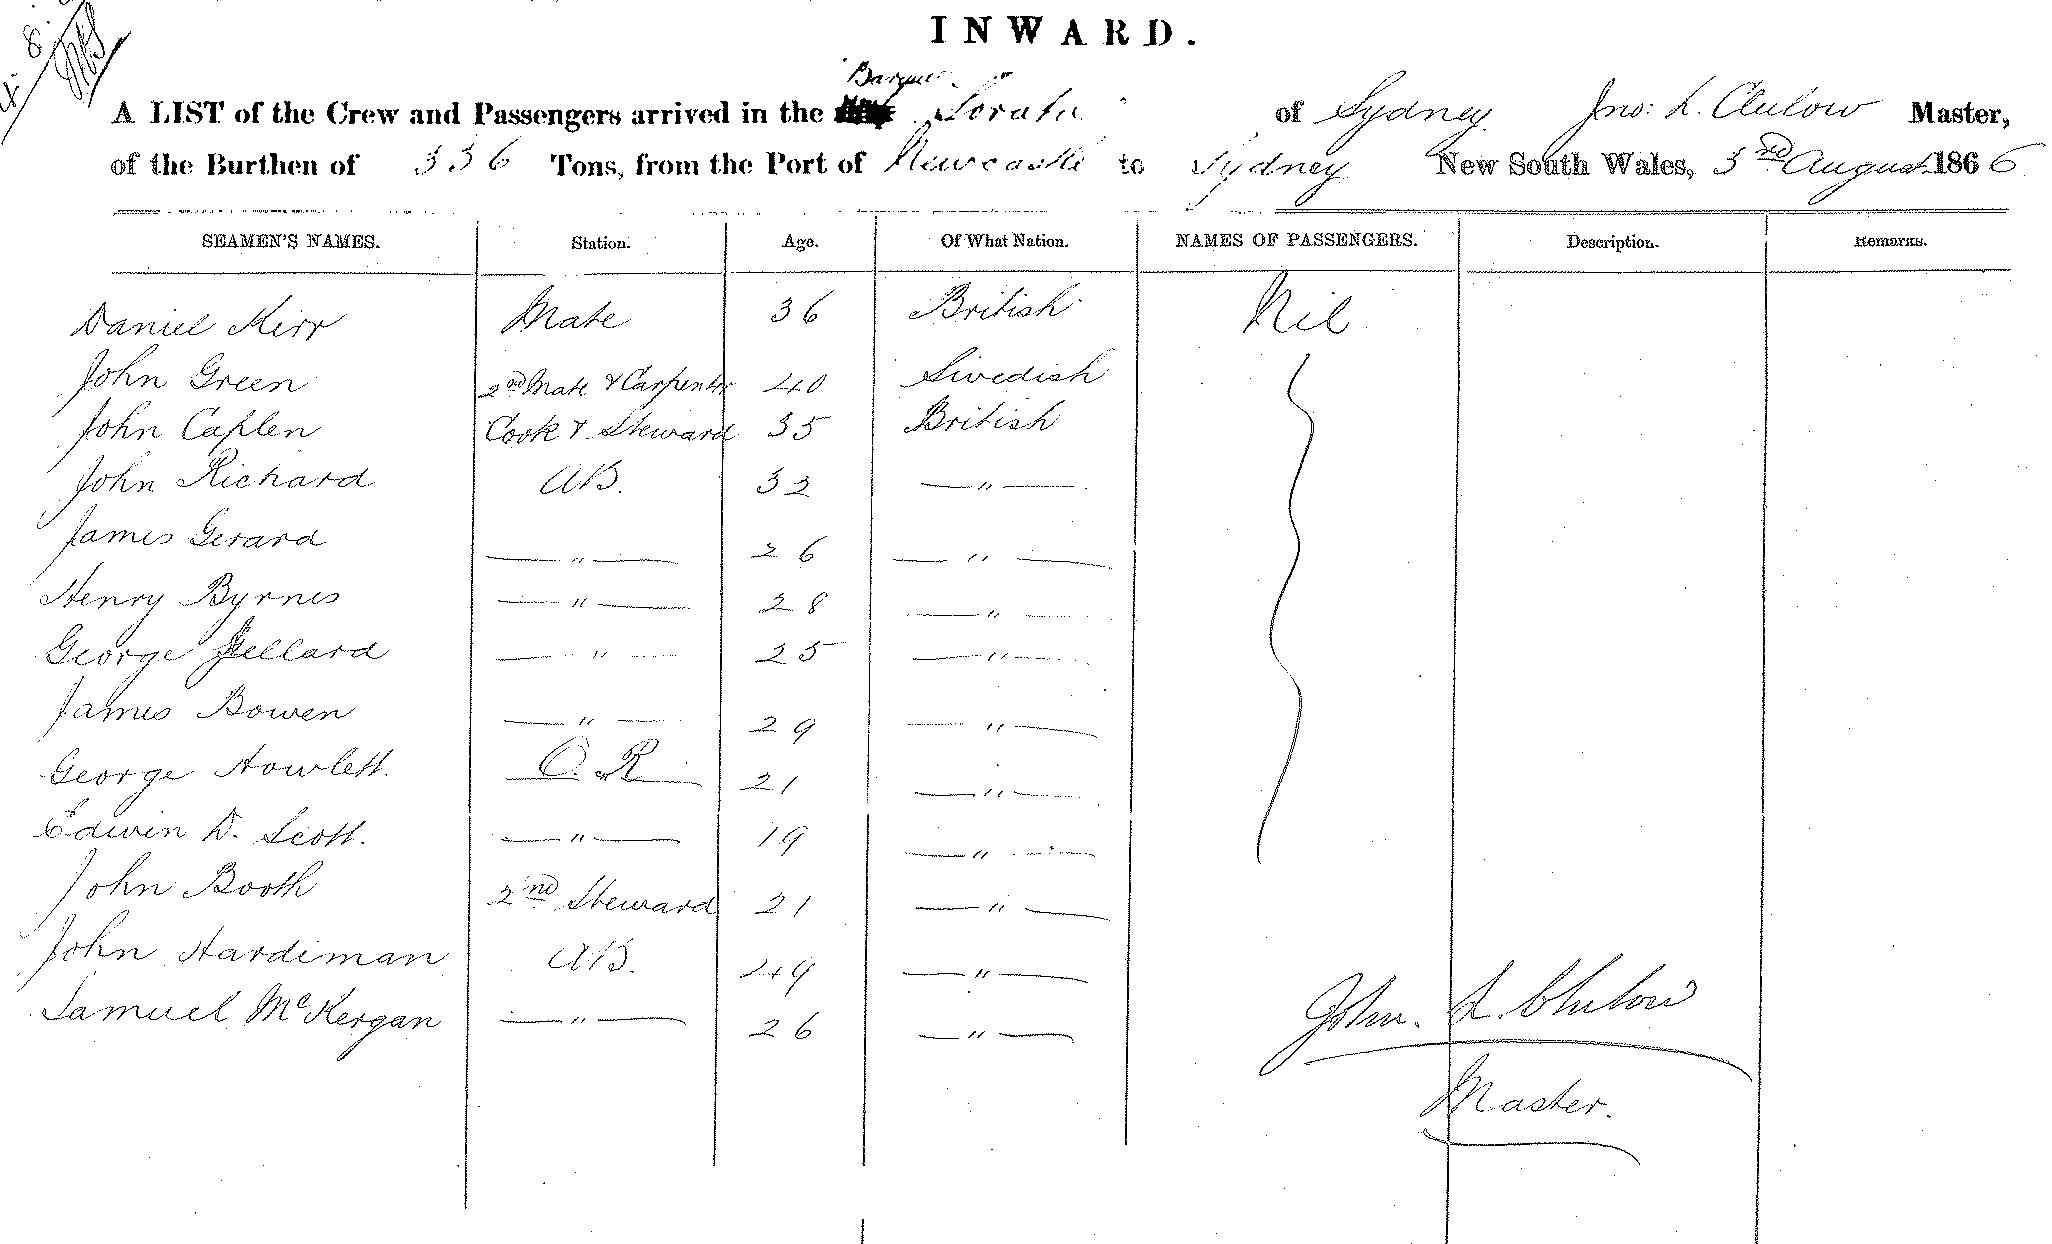 INWARD.
Barque
A LIST of the Crew and Passengers arrived in the Sorata of Sydney Jno: L. Clulow Master,
of the Burthen of 336 Tons, from the Port of Newcastle to Sydney New South Wales, 3rd August 1866
SEAMEN'S NAMES. Station. Age. Of What Nation. NAMES OF PASSENGERS. Description. Remarks.
Daniel Kerr Mate 36 British Nil
John Green 2nd Mate & Carpenter 40 Swedish
John Caplen Cook & Steward 35 British
John Richard AB. 32 — " —
James Gerard — " — 26 — " —
Henry Byrnes — " — 28 — " —
George Jellard — " — 25 — " —
James Bowen — " — 29 — " —
George Howlett. O. R 21 — " —
Edwin D. Scott. — " — 19 — " —
John Booth 2nd Steward 21 — " —
John Hardiman AB. 49 — " —
Samuel McKergan — " — 26 — " —
John. L. Clulow
Master.